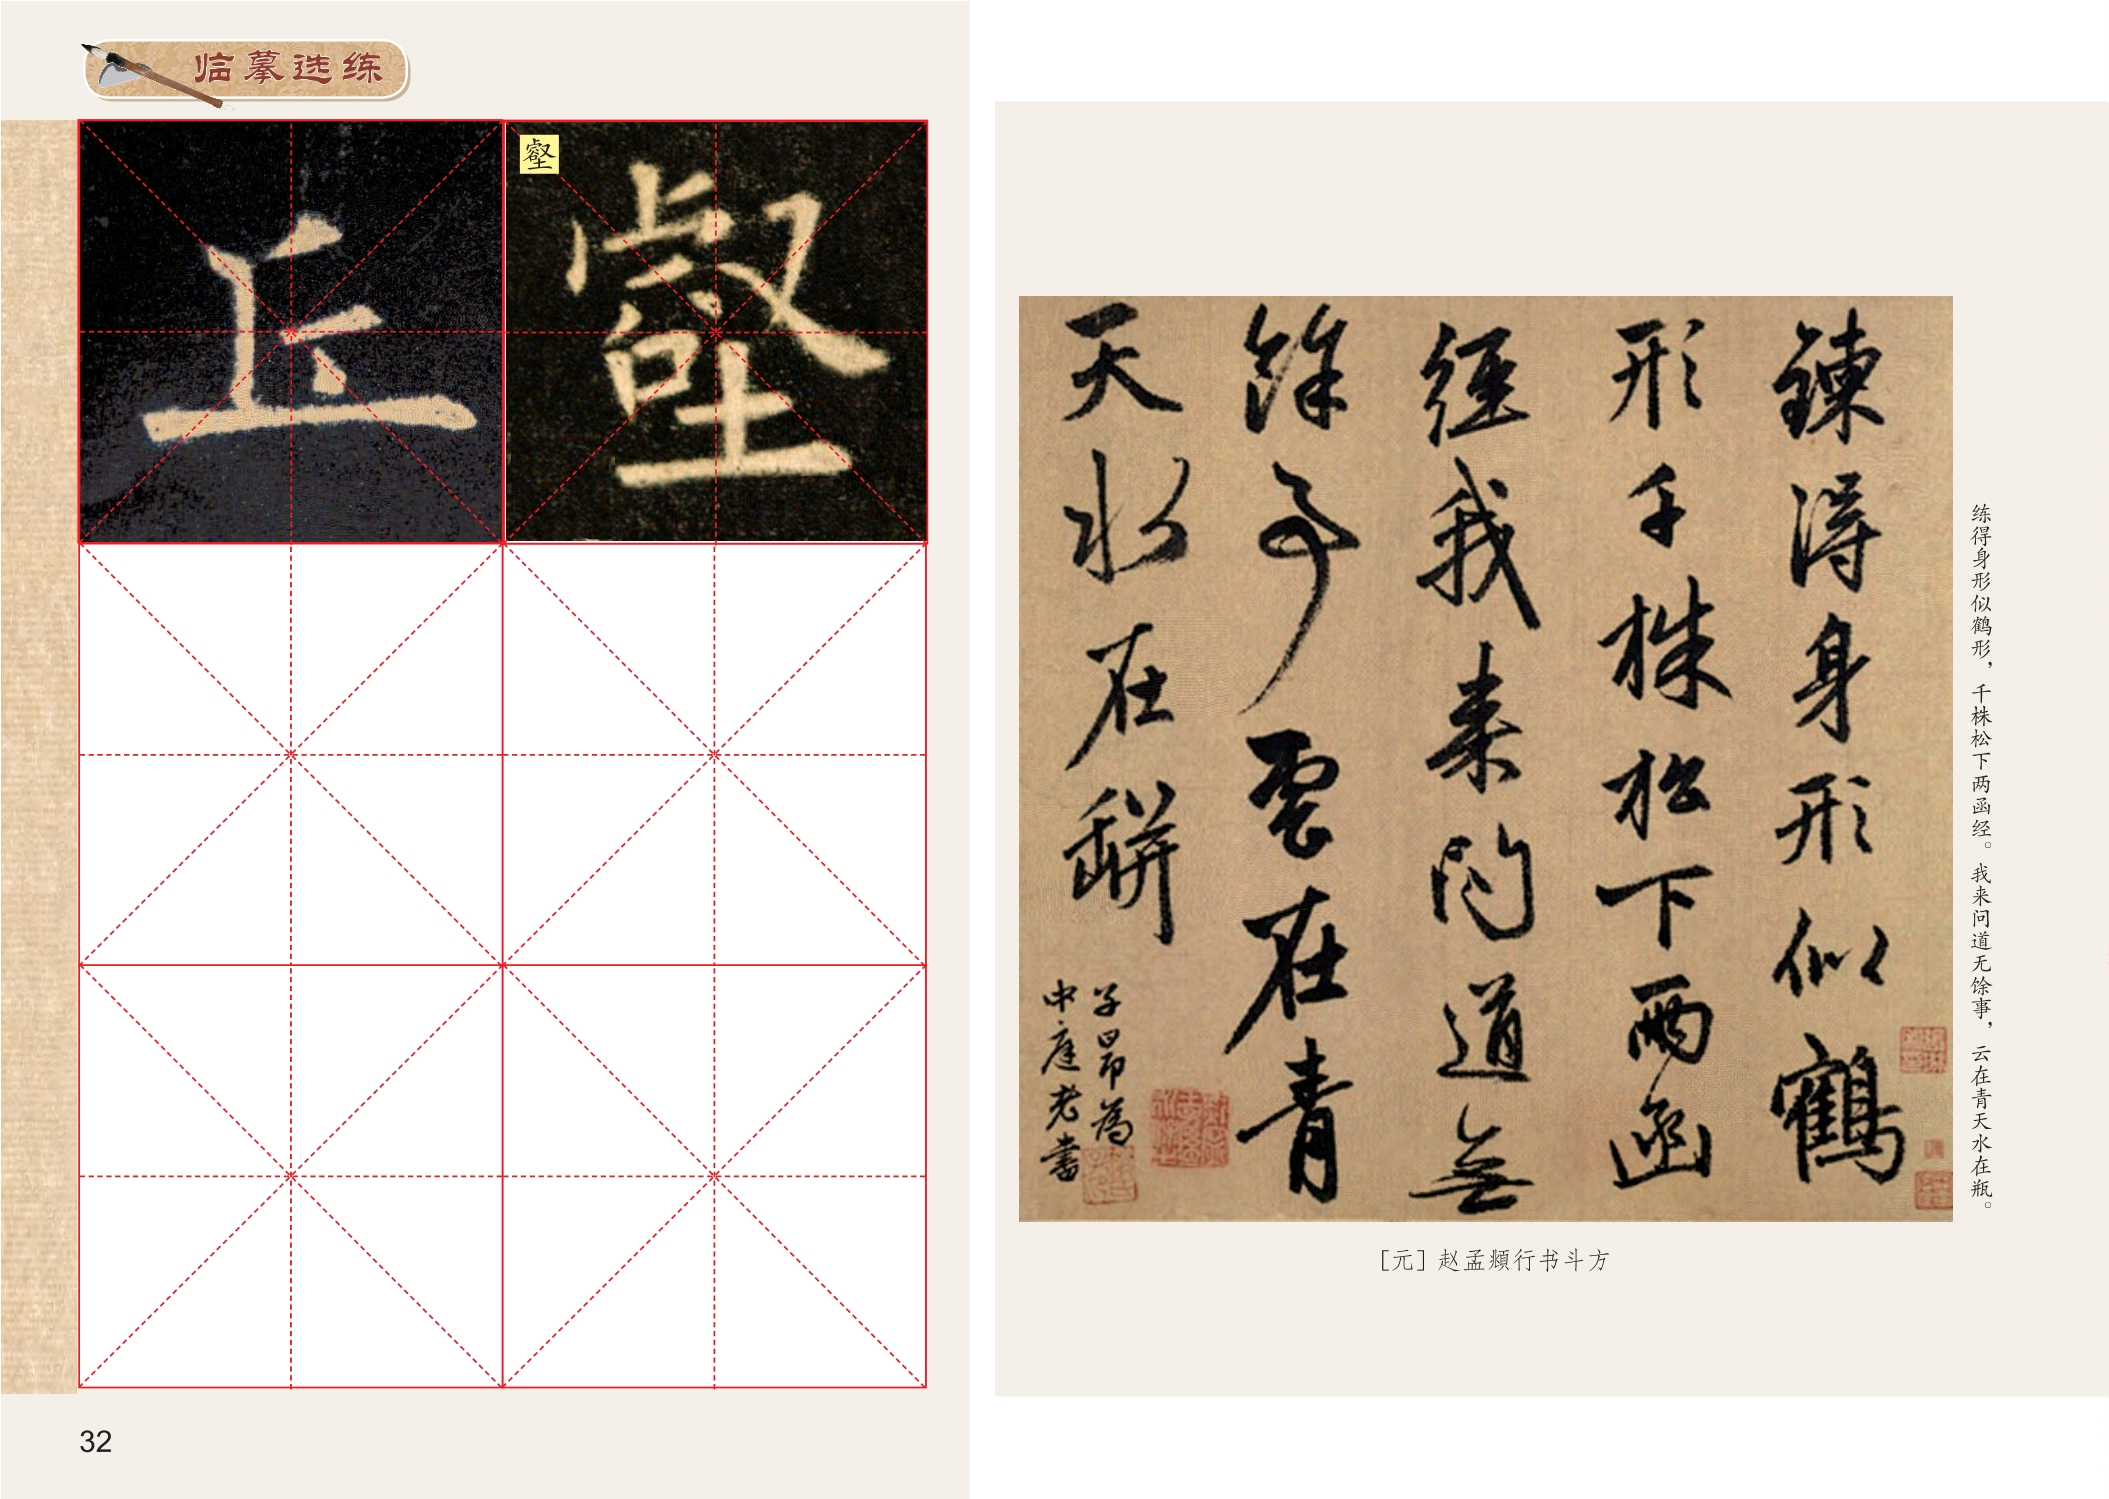 临摹选练
丘
壑
壑
32
鍊得身形似鶴
形千株松下兩函
經我來問道無
餘事雲在青
天水在缾
子昂為
中庭老書
练得身形似鹤形，千株松下两函经。我来问道无馀事，云在青天水在瓶。
［元］赵孟頫行书斗方